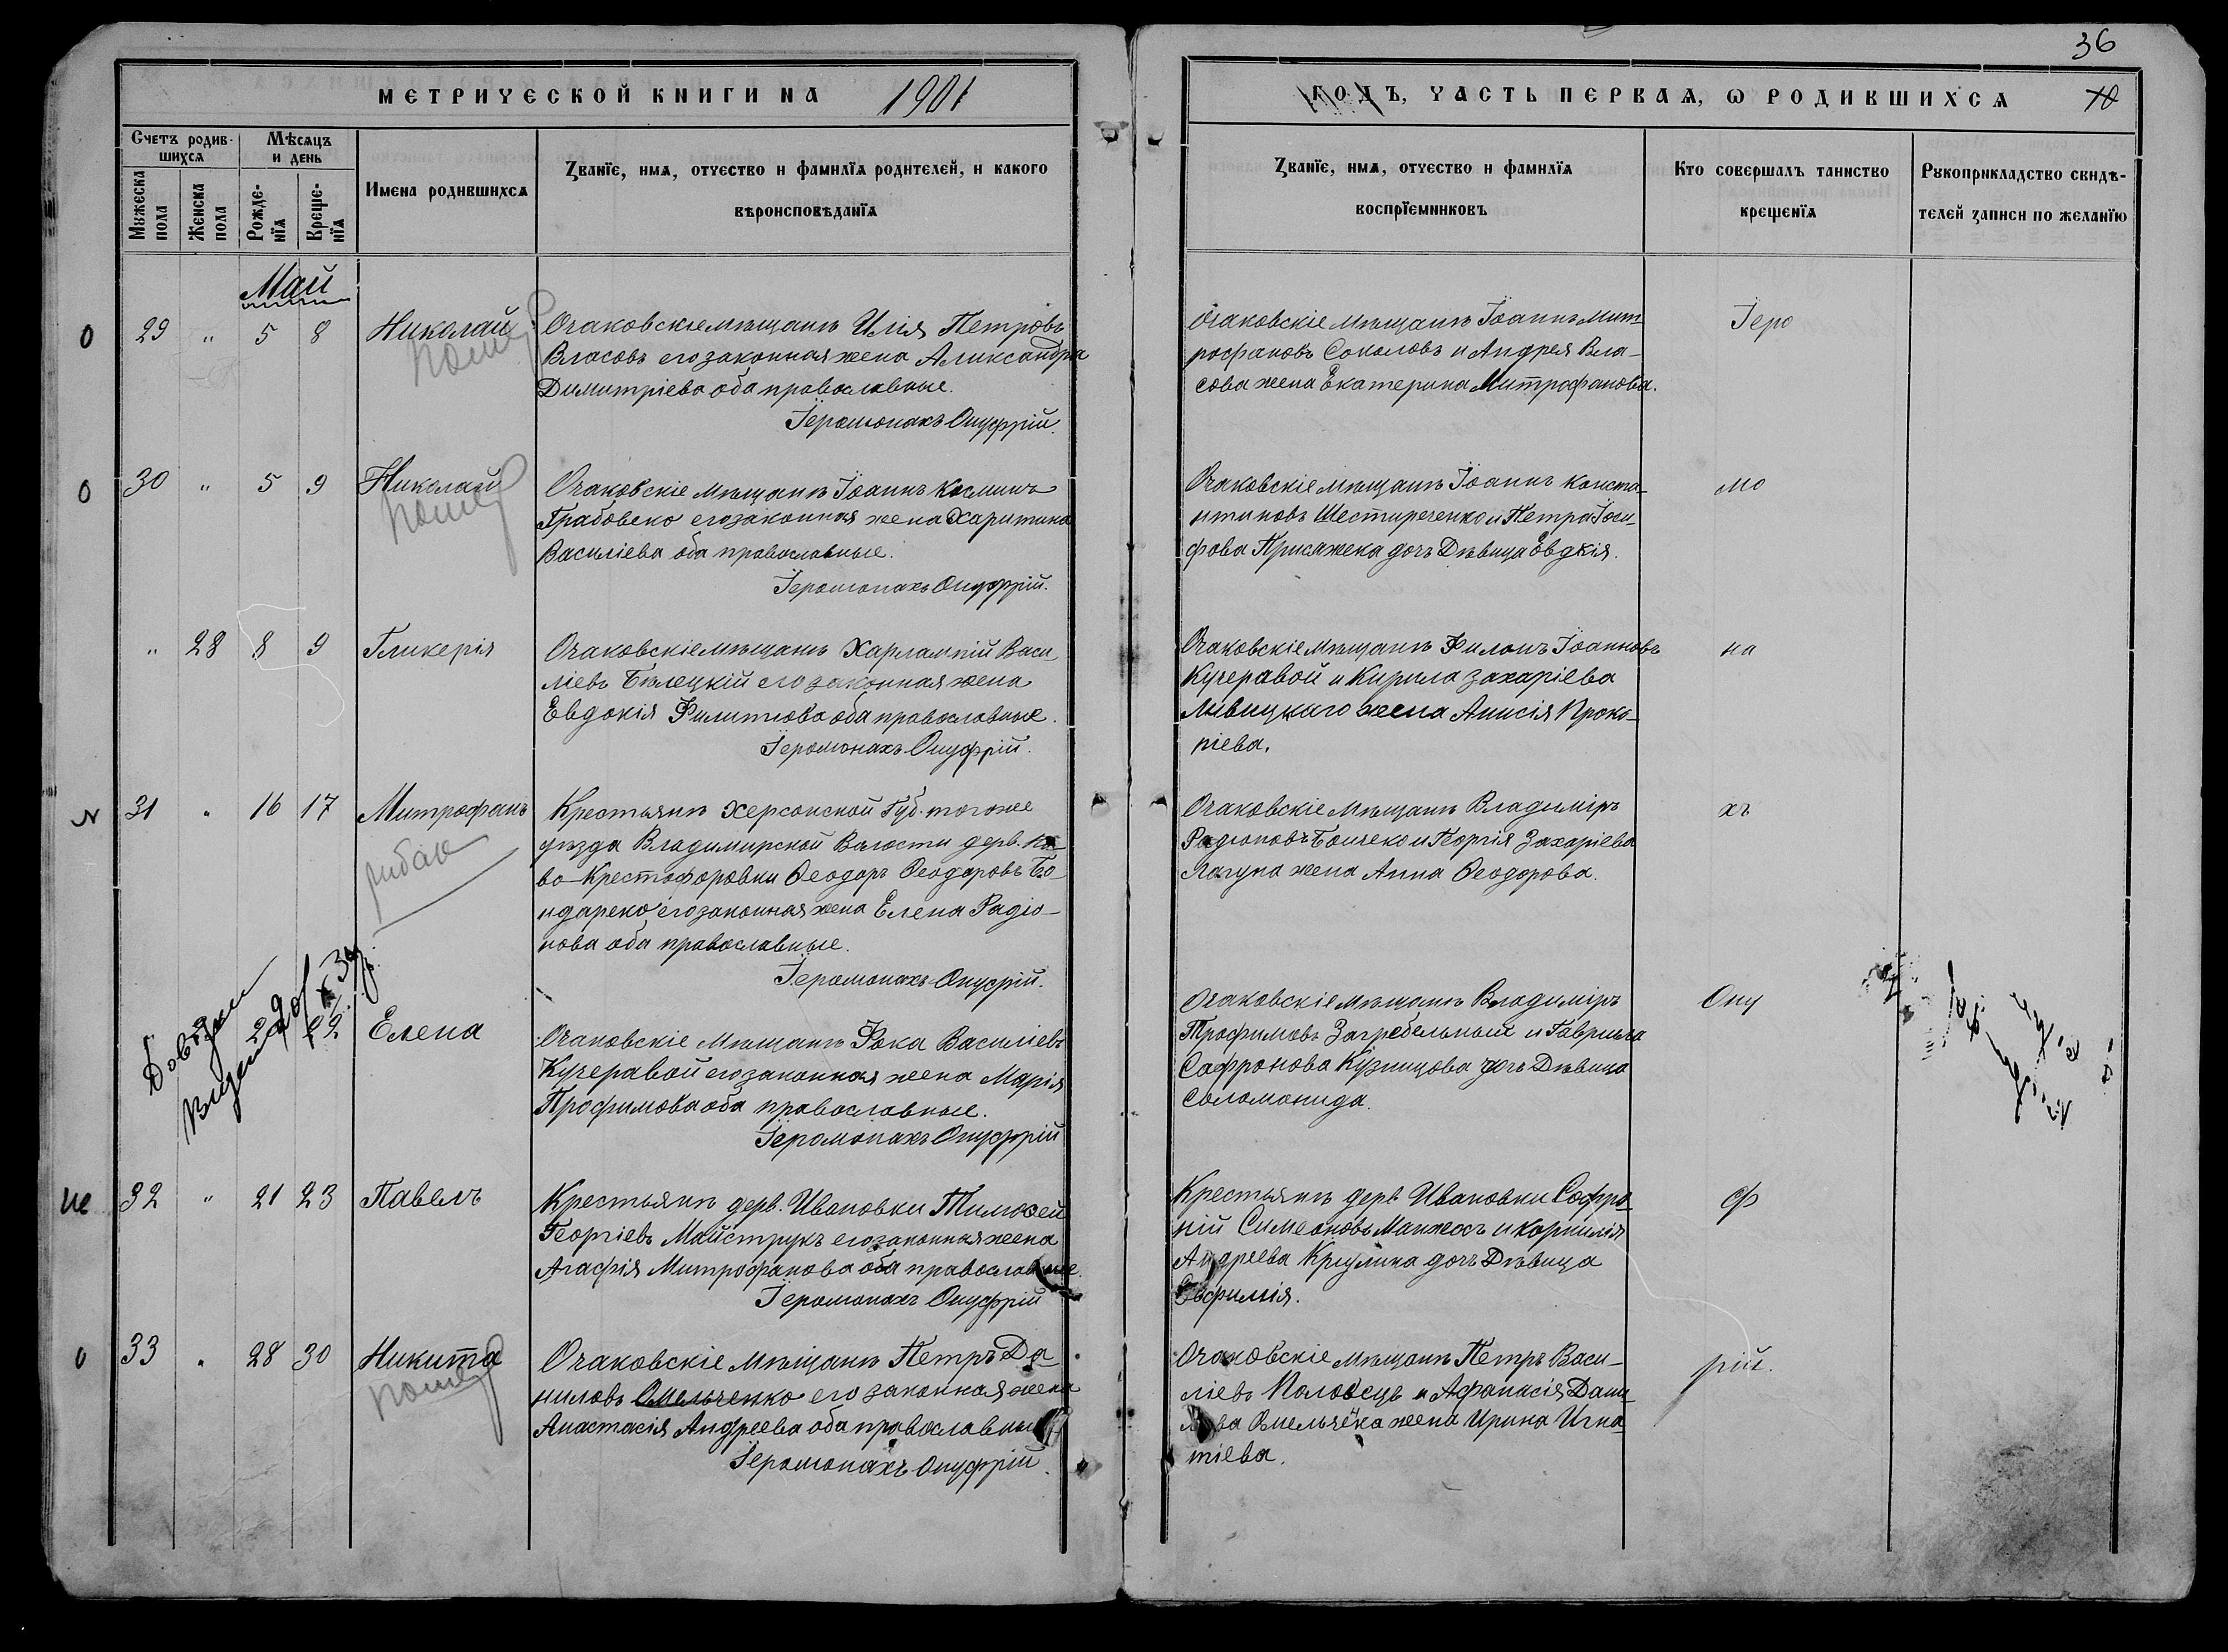 36
МЕТРИЧЕСКОЙ КНИГИ НА 1901
ГОДЪ, ЧАСТЬ ПЕРВАЯ, Ѡ РОДИВШИХСЯ 10
Счетъ родив-
шихся
Мѣсяцъ
и день
Мужеска
пола
Женска
пола
Рожде-
нїя
Креще-
нїя
Имена родившихся
Званїе, имя, отчество и фамилїя родителей, и какого
вѣроисповѣданїя
Званїе, имя, отчество и фамилїя
воспрїемниковъ
Кто совершалъ таинство
крещенїя
Рукоприкладство свидѣ-
телей записи по желанїю
Май
О 29 " 5 8 Николай
Очаковскіе мѣщанъ Илія Петровъ
Власовъ его законная жена Александра
Димитріева оба православные.
Іеромонахъ Онуфрій.
Очаковскіе мѣщанъ Іоаннъ Мит-
рофановъ Соколовъ и Андрея Вла-
сова жена Екатерина Митрофанова.
Іеро
О 30 " 5 9 Николай
Очаковскіе мѣщанъ Іоаннъ Косминъ
Грабовско его законная жена Харитина
Василіева оба православные.
Іеромонахъ Онуфрій.
Очаковскіе мѣщанъ Іоаннъ Конста-
нтиновъ Шестиреченко и Петра Іоси-
фова Присяжека дочь Дѣвица Евдкія.
мо
" 28 8 9 Гликерія
Очаковскіе мѣщанъ Харлампій Васи
ліевъ Бѣлецкій его законная жена
Евдокія Филипова оба православные.
Іеромонахъ Онуфрій.
Очаковскіе мѣщанъ Филонъ Іоанновъ
Кучеравой и Кирила Захаріева
Ливицкаго жена Анисія Проко-
піева.
на
N 31 " 16 17 Митрофанъ
Крестьянъ Херсонской Губ. тогоже
уѣзда Владимирской Волости дерв. Но-
во-Крестофоровки Ѳеодоръ Ѳеодоровъ Бо-
ндареко его законная жена Елена Радіо-
нова оба православные.
Іеромонахъ Онуфрій.
Очаковскіе мѣщанъ Владиміръ
Радіоновъ и Георгія Захаріева
Лагуна жена Анна Ѳеодорова.
хъ
22 Елена
Очаковскіе мѣщанъ Фока Василіевъ
Кучеравой его законная жена Марія
Трофимова оба православные.
Іеромонахъ Онуфрій
Очаковскіе мѣщанъ Владиміръ
Трофимовъ Загребельный и Гавриила
Сафронова Кузнцова дочь Дѣвица
Соломонида.
Ону
Не 32 " 21 23 Павелъ
Крестьянъ дерв. Ивановки Тимоѳей
Георгіевъ Майструкъ его законная жена
Агафія Митрофанова оба православные.
Іеромонахъ Онуфрій
Крестьянъ дерв Ивановки Софро-
ній Симеоновъ Манжосъ и Корнилія
Андреева дочь Дѣвица
Евфимія.
ф
О 33 " 28 30 Никита
Очаковскіе мѣщанъ Петръ Да-
ниловъ Омельченко его законная жена
Анастасія Андреева оба православные
Іеромонахъ Онуфрій.
Очаковскіе мѣщанъ Петръ Васи-
ліевъ Половецъ и Афанасія Дани-
лова Омельчека жена Ирина Игна-
тіева.
рій.